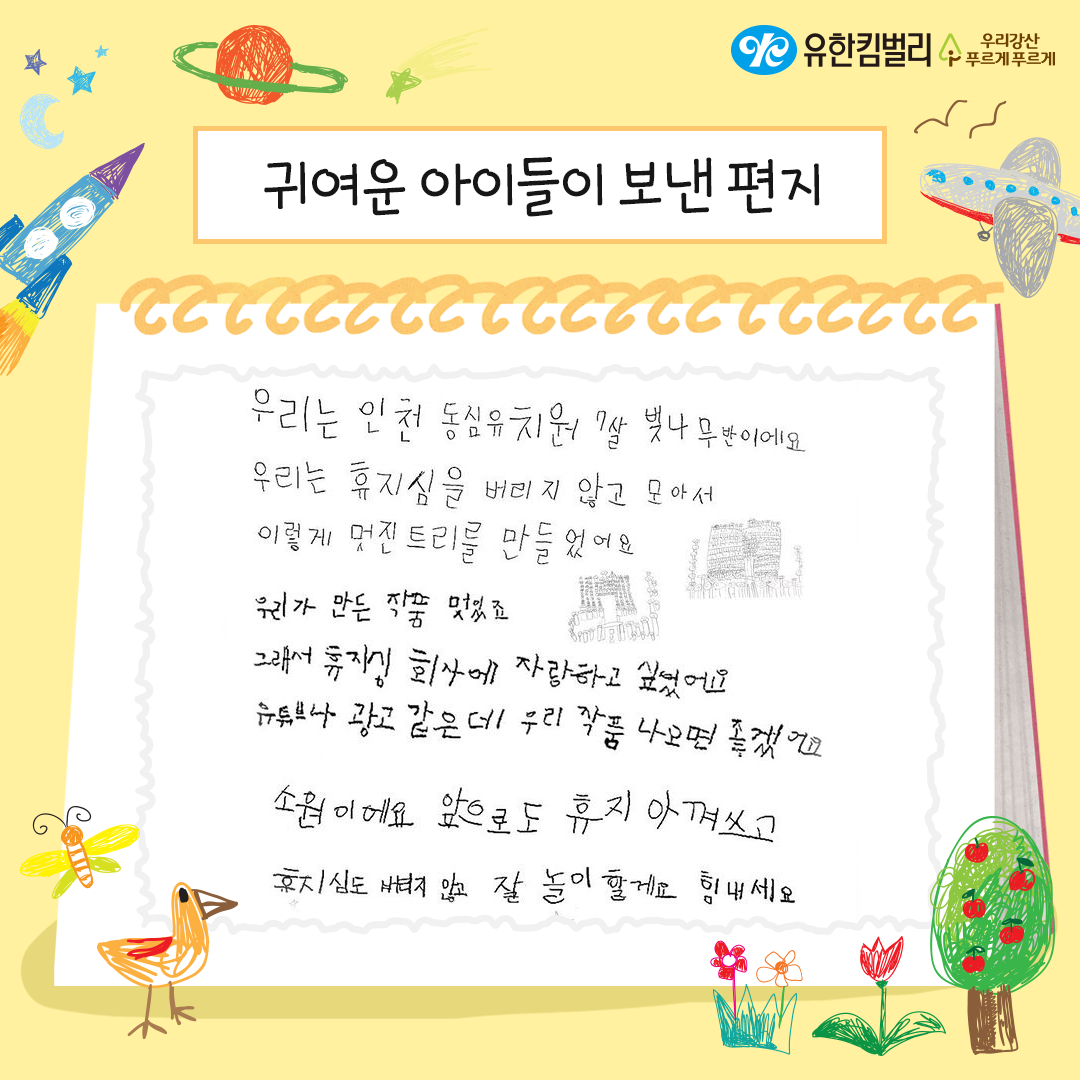 유한킴벌리 우리강산 푸르게 푸르게
귀여운 아이들이 보낸 편지
우리는 인천 동심유치원 7살 벚나무반이에요
우리는 휴지심을 버리지 않고 모아서
이렇게 멋진트리를 만들었어요
우리가 만든 작품 멋있죠
그래서 휴지싱 회사에 자랑하고 싶었어요
유튜브나 광고 같은데 우리 작품 나오면 좋겠어요
소원이에요 앞으로도 휴지 아껴쓰고
휴지심도 버리지 않고 잘 놀이 할게요 힘내세요